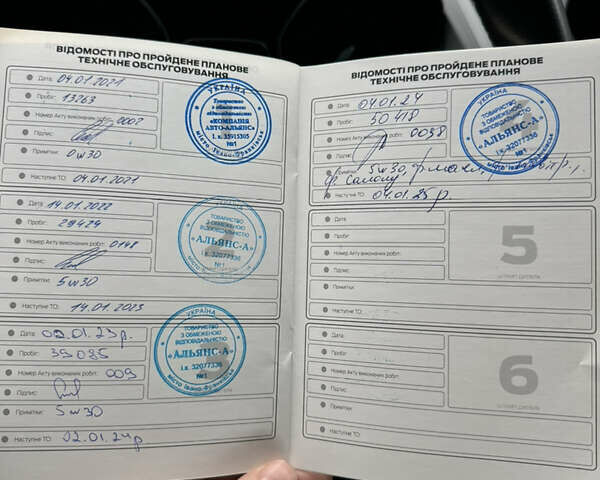 ВІДОМОСТІ ПРО ПРОЙДЕНЕ ПЛАНОВЕ
ТЕХНІЧНЕ ОБСЛУГОВУВАННЯ
Дата: 04.01.2021
Пробіг: 13263
Номер Акту виконаних робіт: 0007
Підпис:
Примітки: 0w30
Наступне ТО: 04.01.2021
УКРАЇНА
Товариство
з обмеженою
відповідальністю
«КОМПАНІЯ
АВТО-АЛЬЯНС»
і.к. 35915305
№1
місто Івано-Франківськ
Дата: 14.01.2022
Пробіг: 29424
Номер Акту виконаних робіт: 0148
Підпис:
Примітки: 5w30
Наступне ТО: 14.01.2023
УКРАЇНА
ТОВАРИСТВО
З ОБМЕЖЕНОЮ
ВІДПОВІДАЛЬНІСТЮ
«АЛЬЯНС-А»
і.к. 32077336
№1
Дата: 02.01.23р.
Пробіг: 39085
Номер Акту виконаних робіт: 009
Підпис:
Примітки: 5w30
Наступне ТО: 02.01.24р
УКРАЇНА
ТОВАРИСТВО
З ОБМЕЖЕНОЮ
ВІДПОВІДАЛЬНІСТЮ
«АЛЬЯНС-А»
і.к. 32077336
№1
місто Івано-Франківськ
ВІДОМОСТІ ПРО ПРОЙДЕНЕ ПЛАНОВЕ
ТЕХНІЧНЕ ОБСЛУГОВУВАННЯ
Дата: 04.01.24
Пробіг: 50418
Номер Акту виконаних робіт: 0038
Підпис:
Примітки: 5w30,
ф. салону
Наступне ТО: 04.01.25р.
УКРАЇНА
ТОВАРИСТВО
З ОБМЕЖЕНОЮ
ВІДПОВІДАЛЬНІСТЮ
«АЛЬЯНС-А»
і.к. 32077336
№1
Дата:
Пробіг:
Номер Акту виконаних робіт:
Підпис:
Примітки:
Наступне ТО:
5
ШТАМП ДИЛЕРА
Дата:
Пробіг:
Номер Акту виконаних робіт:
Підпис:
Примітки:
Наступне ТО:
6
ШТАМП ДИЛЕРА